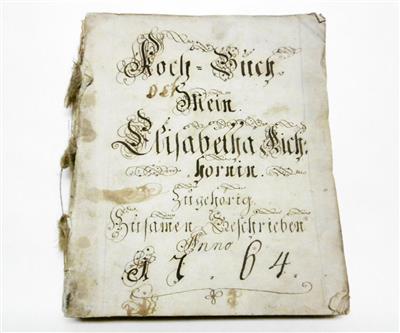 Koch-Buch
Mein.
Elisabetha Eich-
hornin.
Zugehörig.
Zusamen Geschrieben
Anno
1 7. 6 4.